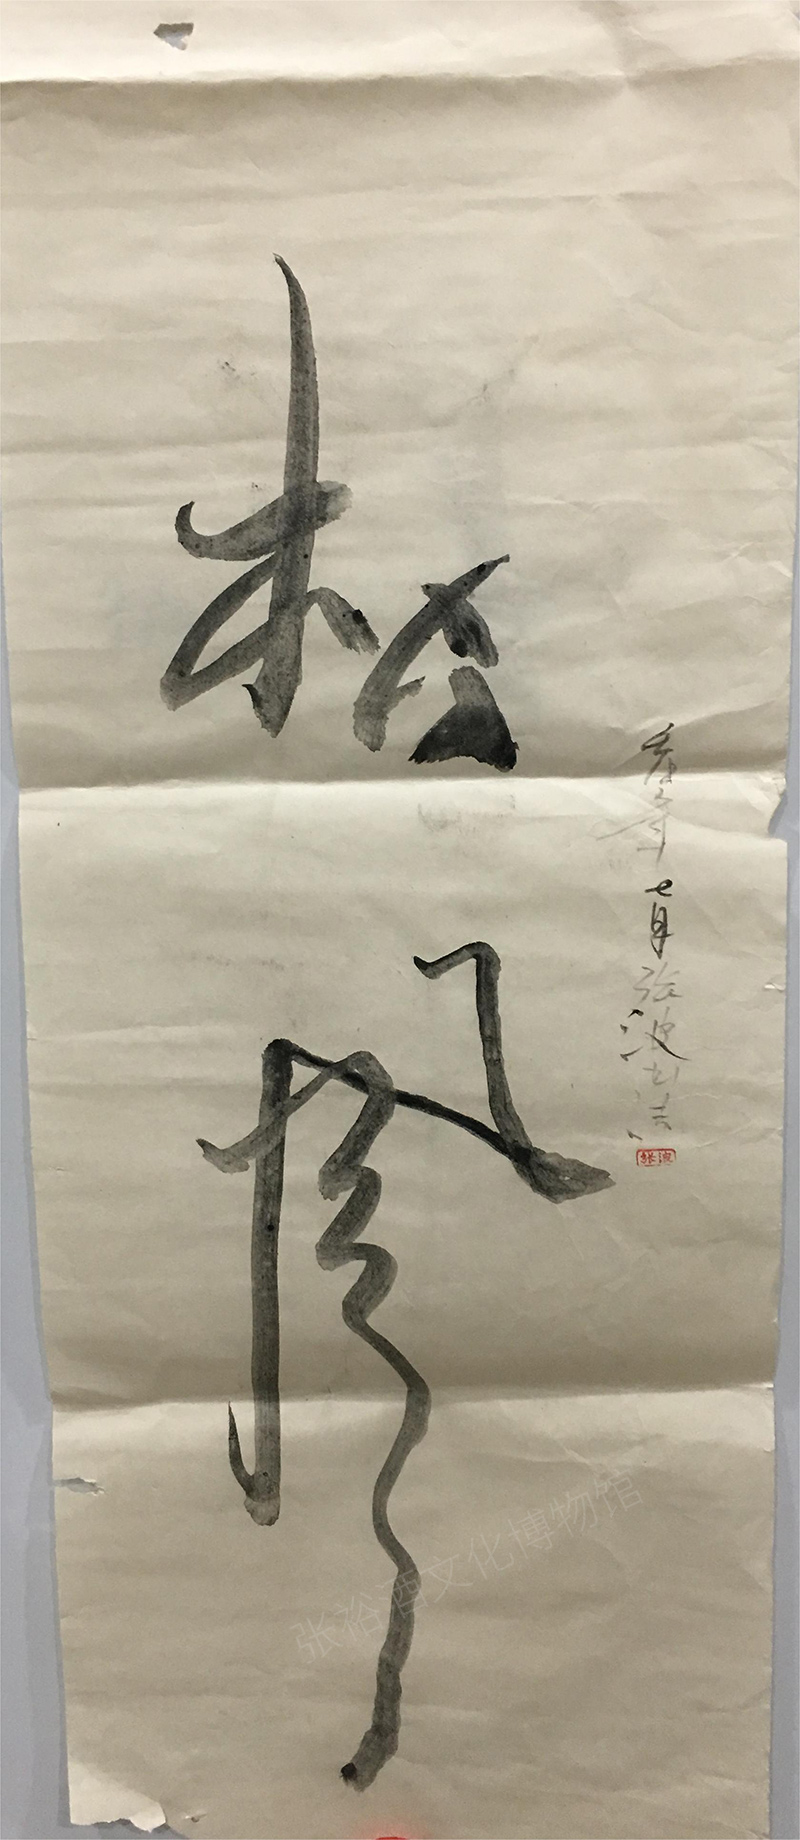 松
年七月张波书法
張波
张裕酒文化博物馆